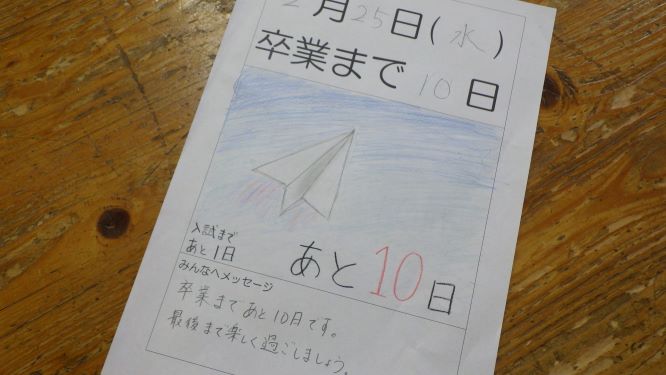 2月25日(水)
卒業まで10日
入試まで
あと1日
あと10日
みんなへメッセージ
卒業まであと10日です。
最後まで楽しく過ごしましょう。